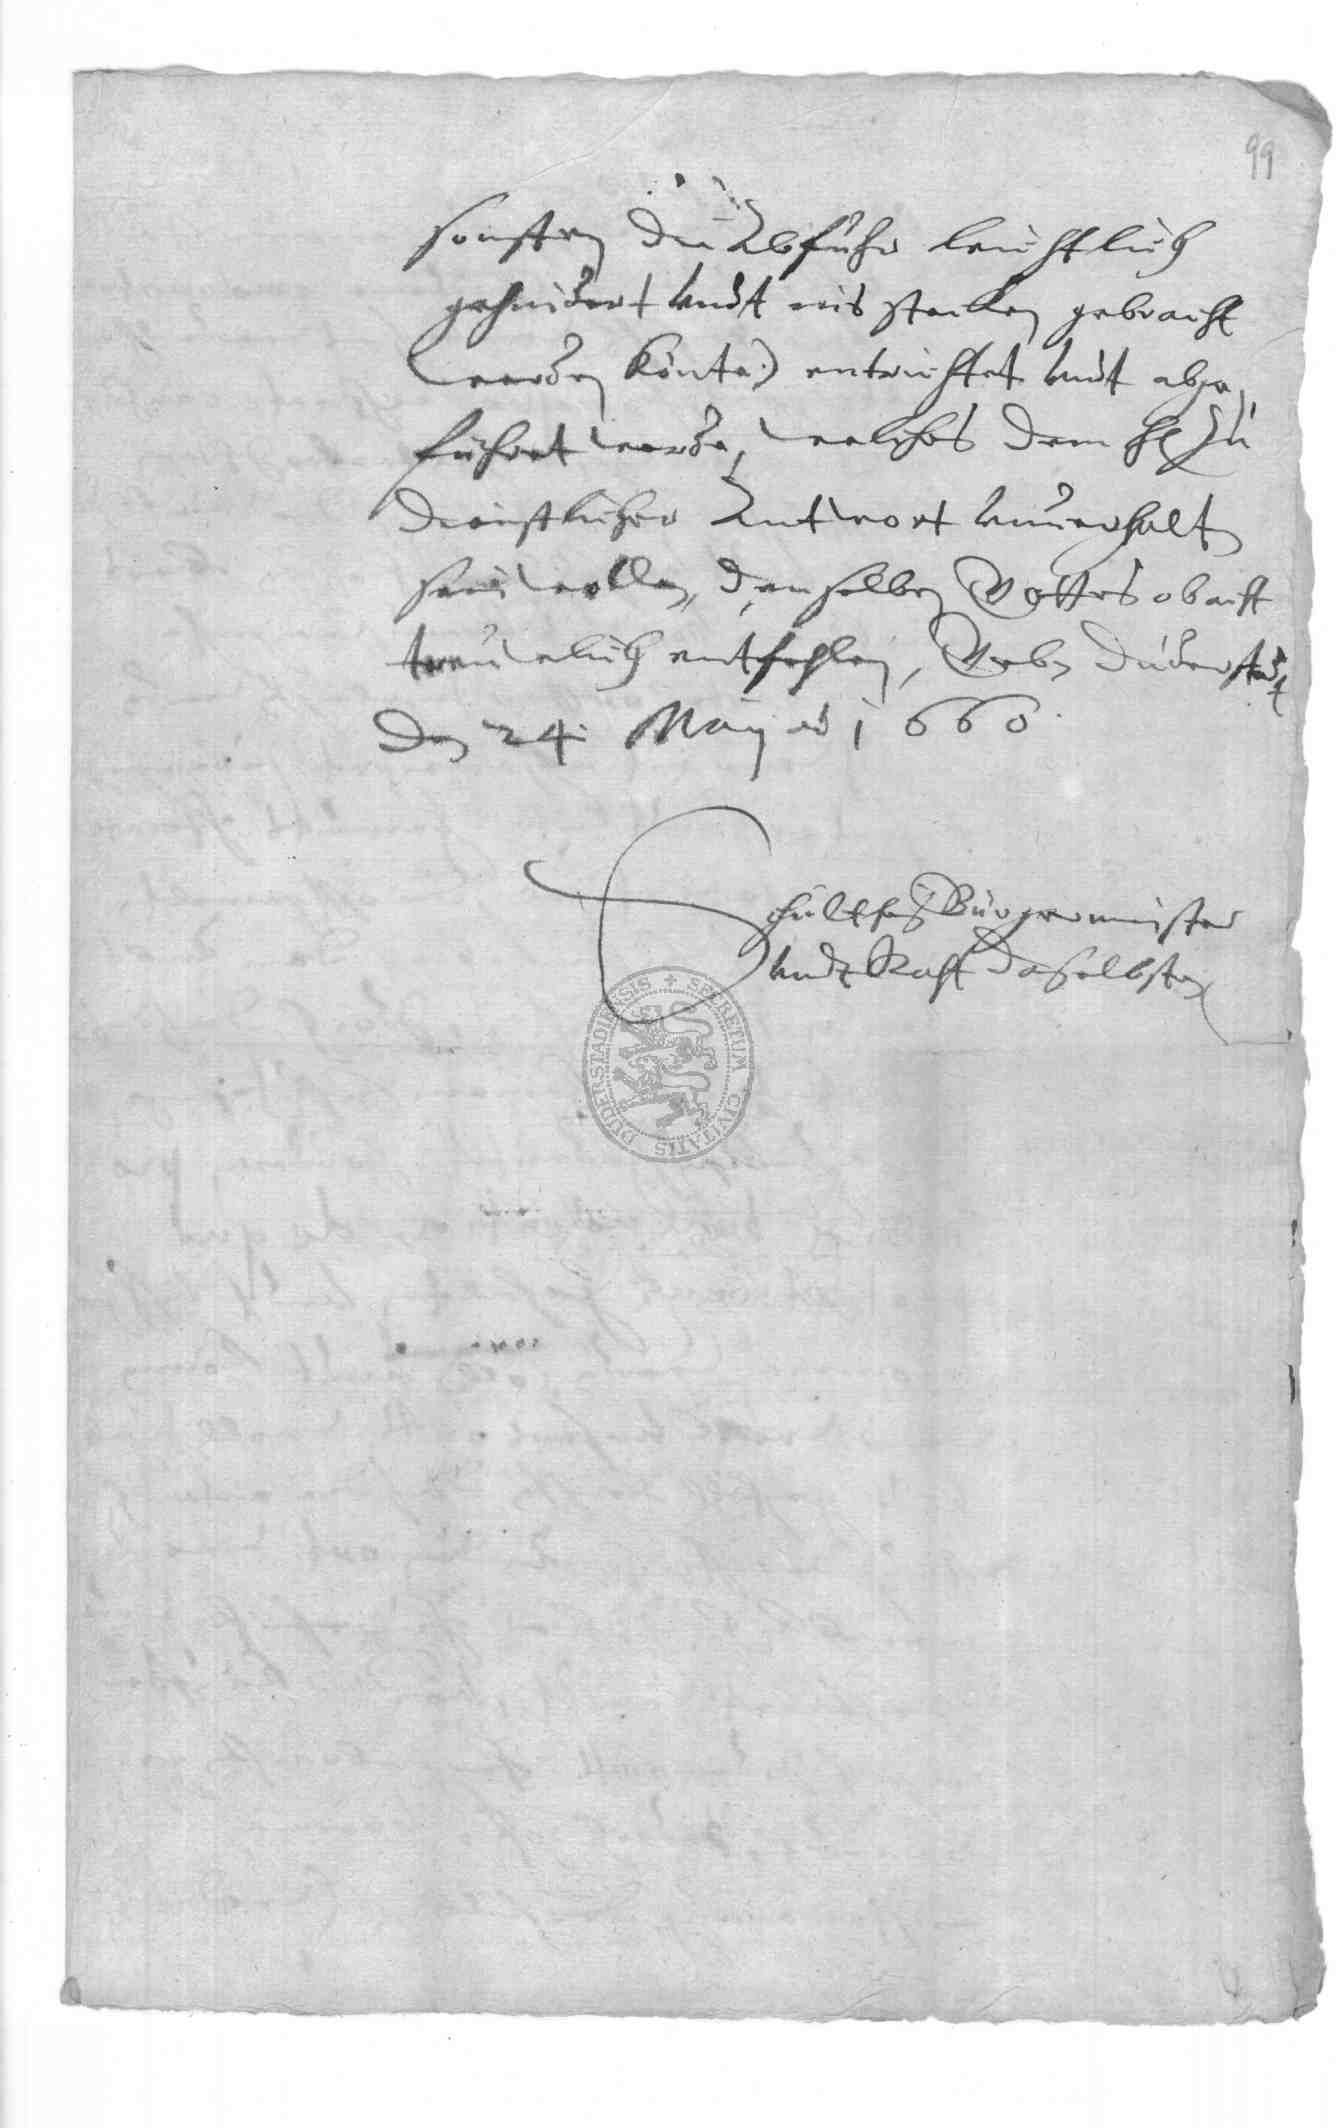 99
sonsten die Abfuhr leichtlich
gehindert undt ins stecken gebracht
werden könte) entrichtet undt abge„
führet werde, welches dem H zu
dienstlicher Antwort unverhalten
sein wollen, denselben Gottes obacht
treuwlich entfehlen, Geben Duderstadt
den 24. Maij ao 1660.
Schultheß Bürgermeister
undt Raht daselbsten
SECRETUM CIVITATIS DUDERSTADIENSIS